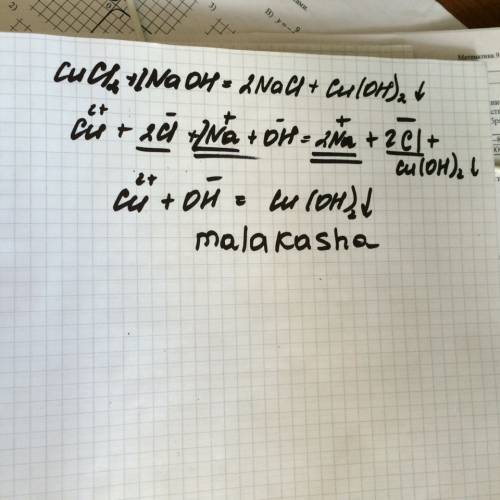 2)
В) y = -9
Математика 9
CuCl₂ + 2NaOH = 2NaCl + Cu(OH)₂↓
Cu²⁺ + 2Cl⁻ + 2Na⁺ + OH⁻ = 2Na⁺ + 2Cl⁻ +
Cu(OH)₂↓
Cu²⁺ + OH⁻ = Cu(OH)₂↓
malakasha